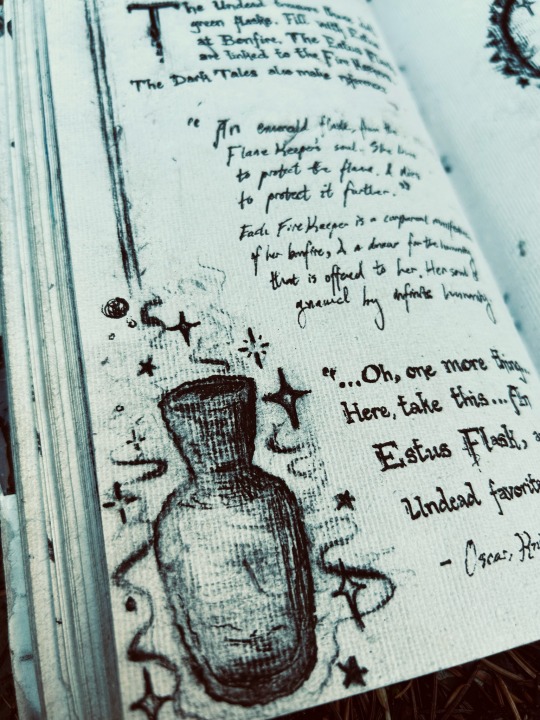 The Undead
green flasks. Fill with
at Bonfire. The Estus
are linked to the Fire
The Dark Tales also make reference
"An emerald flask, from the
Flame Keeper's soul. She lives
to protect the flame, &
to protect it further."
Each Fire Keeper is a corporeal
of her bonfire, & a draw for the humanity
that is offered to her. Her soul
gnawed by infinite humanity
"...Oh, one more thing..
Here, take this... An
Estus Flask,
Undead favorite
- Oscar,